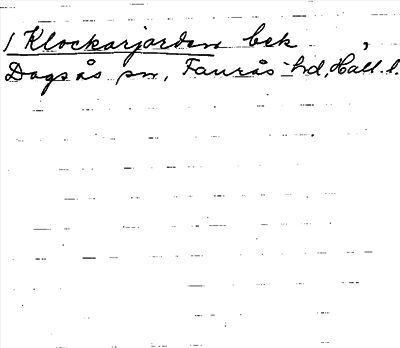 1 Klockarjorden bek ,
Dagsås sn, Faurås hd, Hall. l.